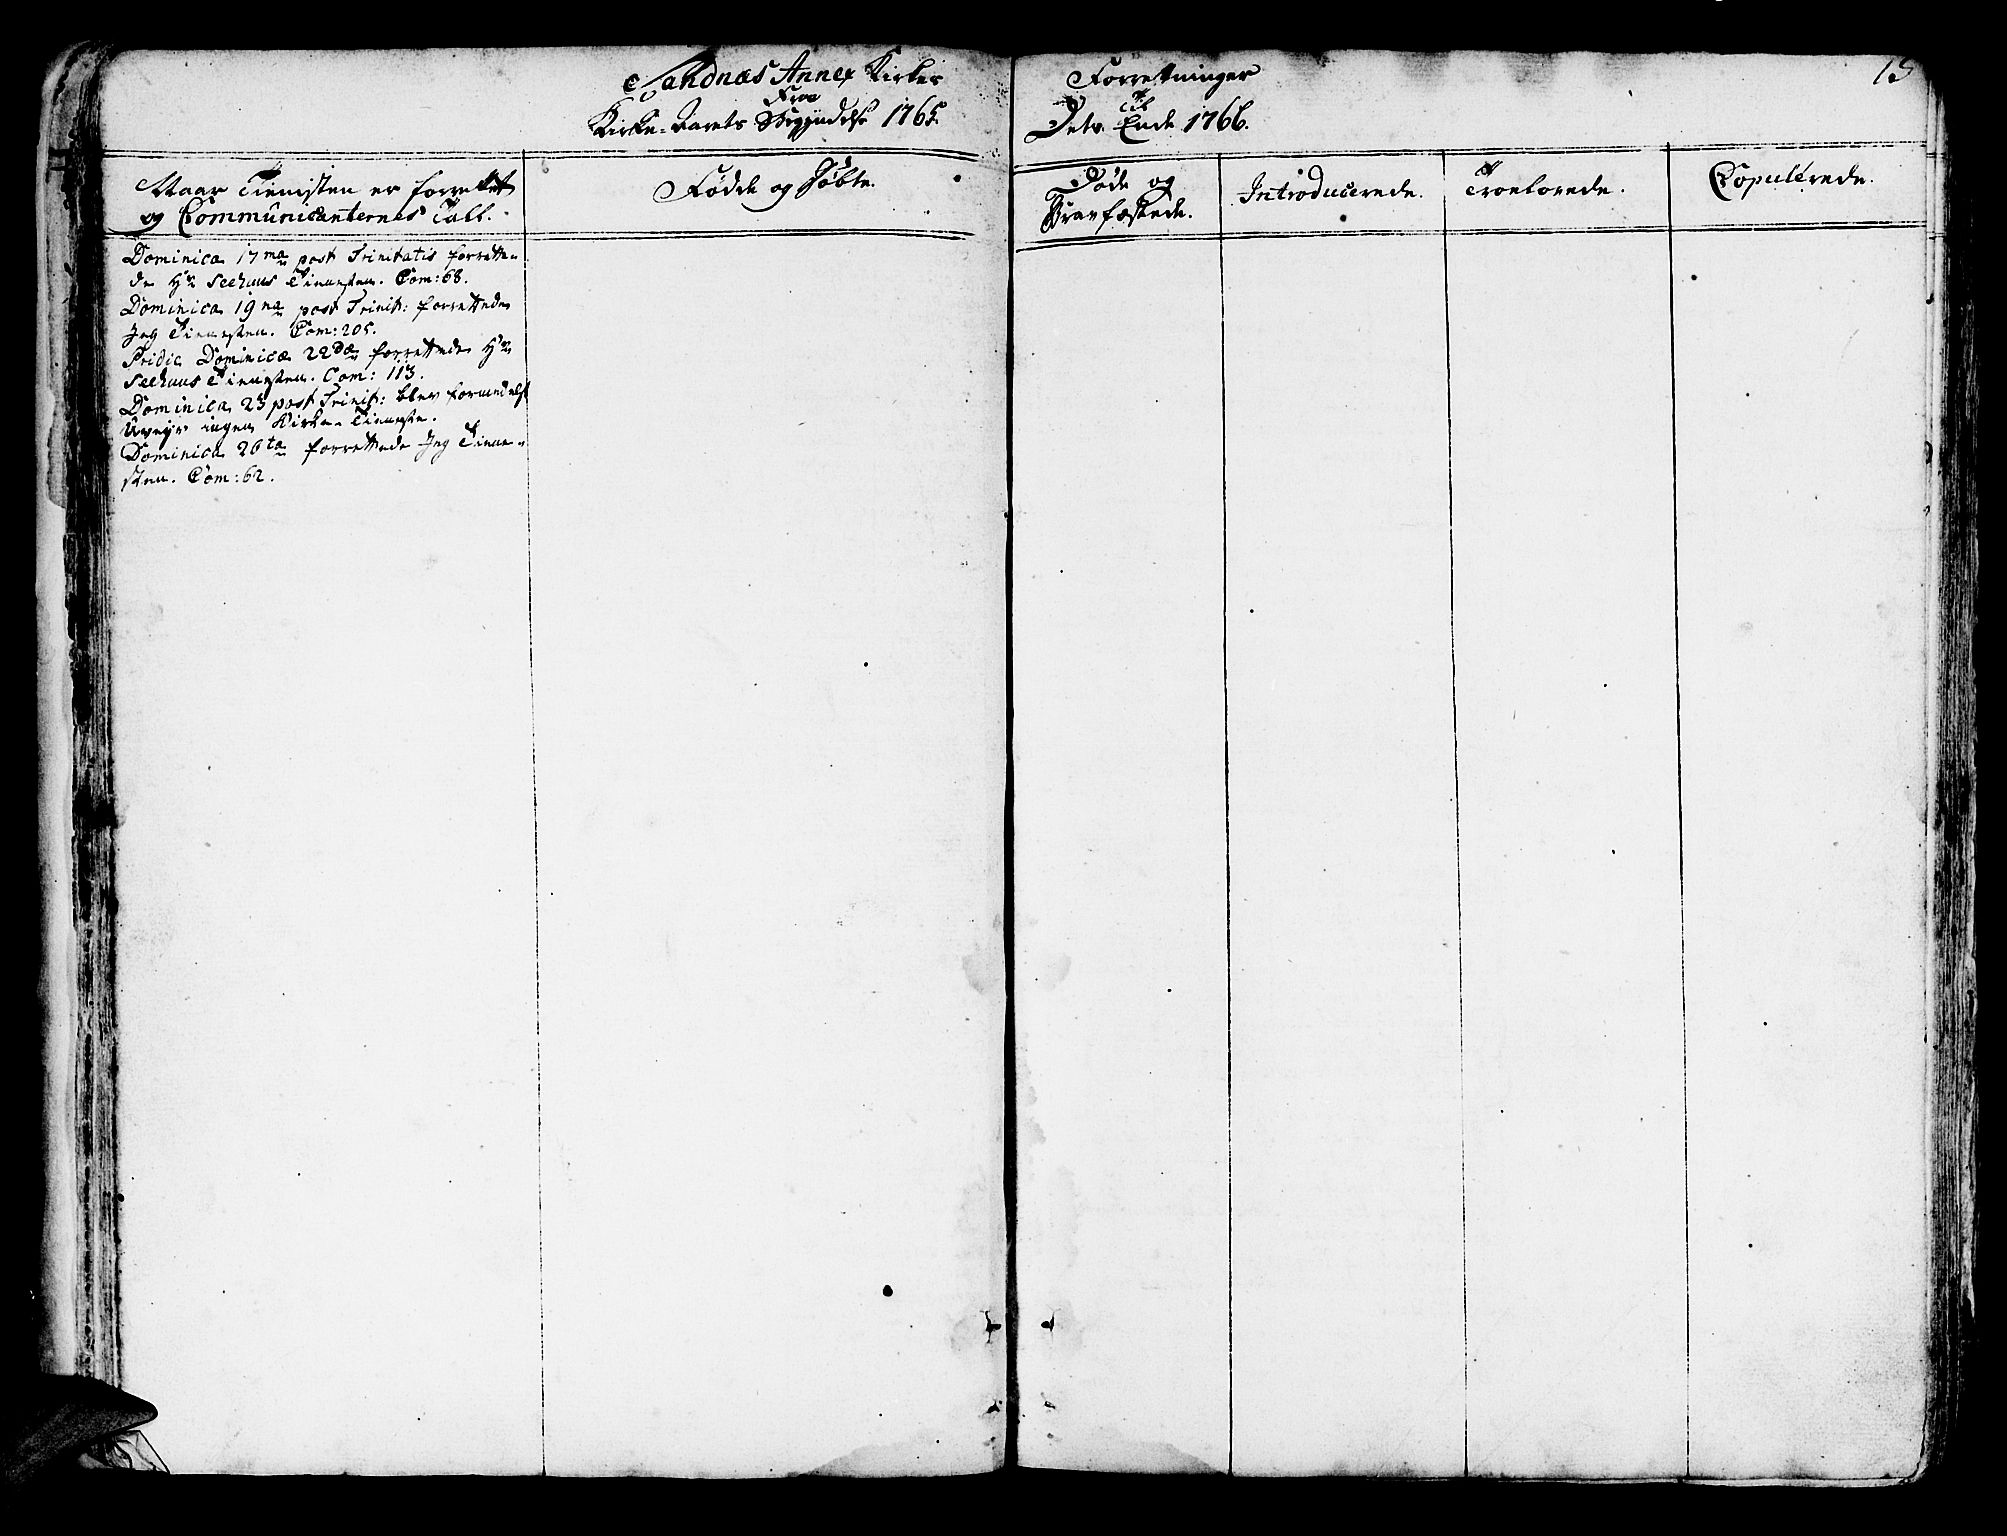 Sandnæs Annex Kirkes Forretninger
Fra
Kirke-Aarets Begyndelse 1765.
Til
Dets Ende 1766.
13
Naar Tienisten er forrettet
og Communicanternes Tall.
Fødde og Døbte.
Døde og
Gravfæstede.
Introducerede.
Troelovede.
Copulerede.
Dominica 17ma post Trinitatis forrette-
de Hr Seehuus Tienesten. Com: 68.
Dominica 19na post Trinit: forrettede
Jeg Tienesten. Com: 205.
Pridie Dominicæ 22dæ forrettede Hr
Seehuus Tienesten. Com: 113.
Dominica 23 post Trinit: blev formedelst
Uveyr ingen Kirke-Tieneste.
Dominica 26ta forrettede Jeg Tiene-
sten. Com: 62.